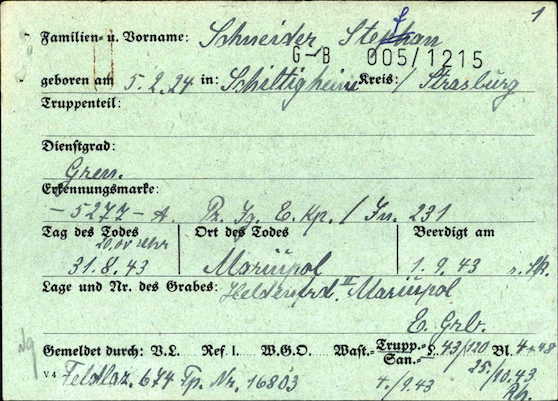 1
Familien- u. Vorname: Schneider Stephan
f
G-B 005/1215
geboren am 5.2.24 in: Schiltigheim Kreis: / Strasburg
Truppenteil:
Dienstgrad:
Gren.
Erkennungsmarke:
-5277- A. Pz. Jg. E. Kp. / Jn. 231
Tag des Todes Ort des Todes Beerdigt am
20.00 Uhr
31.8.43 Mariupol 1.9.43
Lage und Nr. des Grabes: Heldenfrd. II Mariupol
E. Grb.
Gemeldet durch: V.L. Ref I. W.G.O. Wast.- Trupp.- San.- 43/120 Bl. 4+48
V 4 Feldlaz. 674 Fp. Nr. 16803 4./9.43 25./10.43